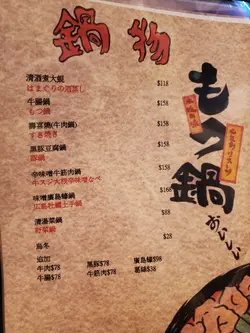 鍋物
清酒煮大蜆 $118
はまぐりの酒蒸し
牛腸鍋 $158
もつ鍋
壽喜燒(牛肉鍋) $158
すき焼き
黑豚豆腐鍋 $158
豚鍋
辛味噌牛筋肉鍋 $158
牛スジ大根辛味噌なべ
味噌廣島蠔鍋 $168
広島牡蠣土手鍋
清湯菜鍋 $88
野菜鍋
烏冬 $28
追加
牛肉$78 黑豚$78 廣島蠔$98
牛腸$78 牛筋肉$78 菇$38
もつ鍋
おいしい